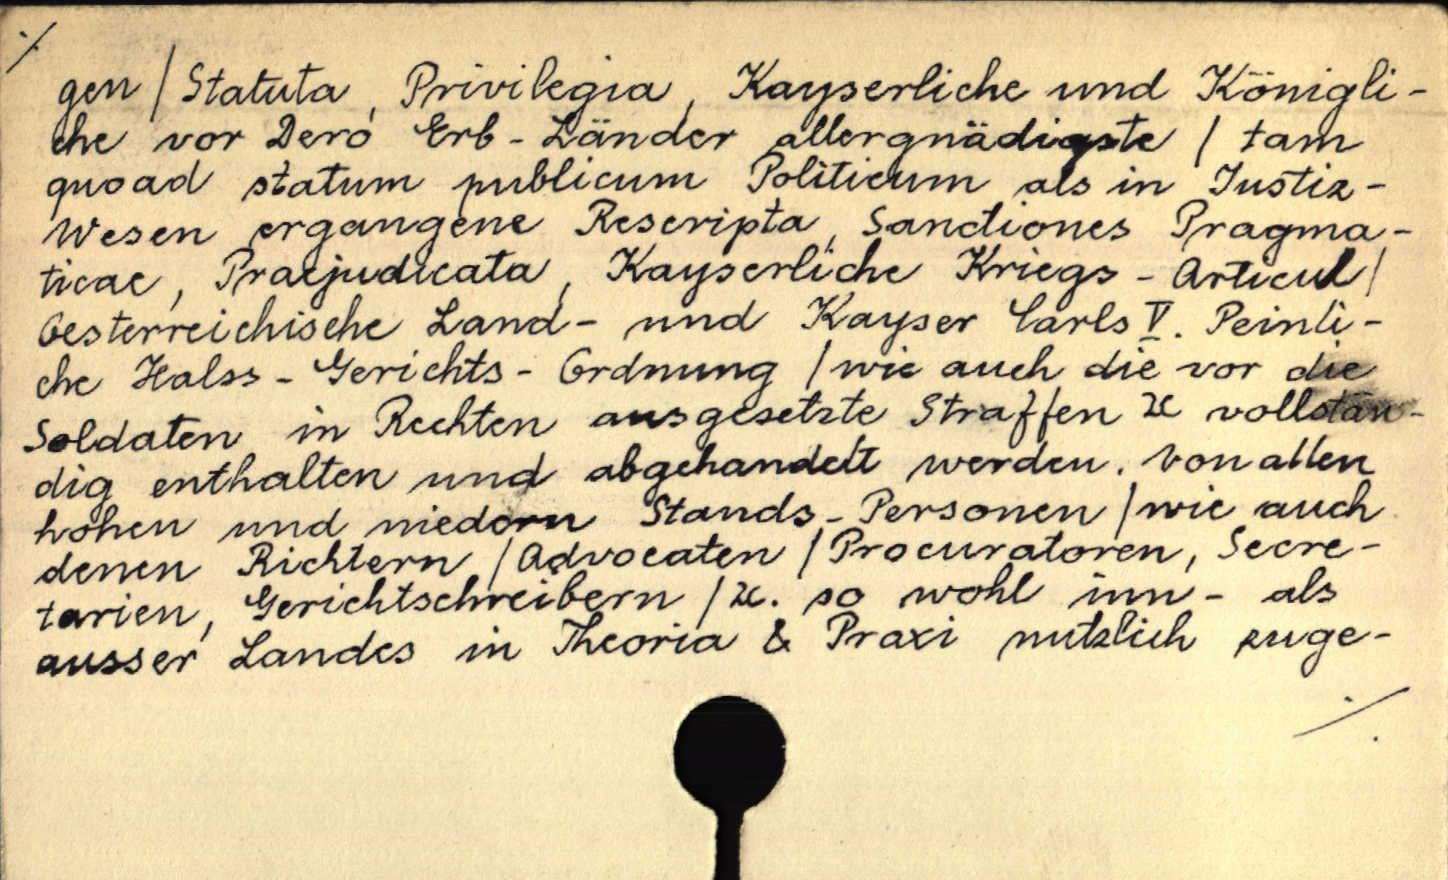 ./.
gen / Statuta, Privilegia, Kayserliche und Königli-
che vor Dero Erb-Länder allergnädigste / tam
quoad statum publicum Politicum als in Justiz-
Wesen ergangene Rescripta, Sanctiones Pragma-
ticae, Praejudicata, Kayserliche Kriegs-Articul /
Oesterreichische Land- und Kayser Carls V. Peinli-
che Halss-Gerichts-Ordnung / wie auch die vor die
Soldaten in Rechten ausgesetzte Straffen ꝛc vollstän-
dig enthalten und abgehandelt werden. Von allen
hohen und niedern Stands-Personen / wie auch
denen Richtern / Advocaten / Procuratoren, Secre-
tarien, Gerichtschreibern / ꝛc. so wohl inn- als
ausser Landes in Theoria & Praxi nutzlich zuge-
./.